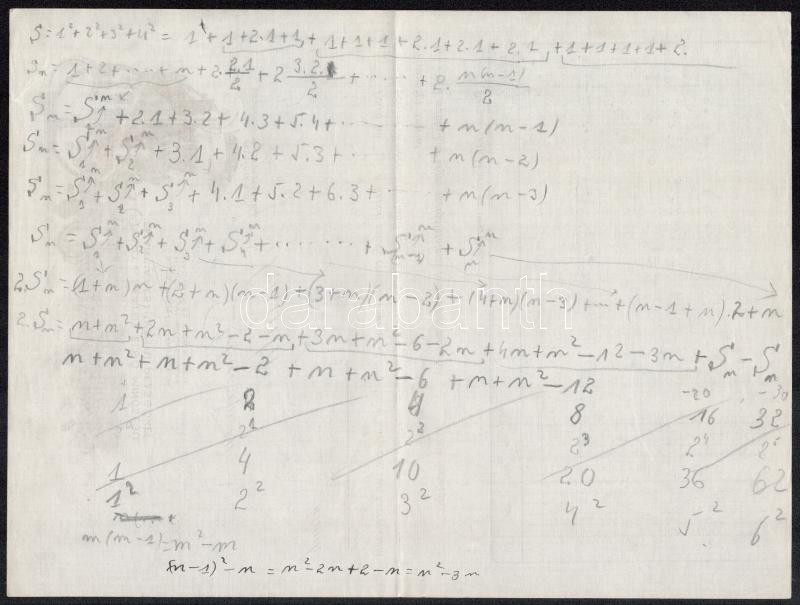 S=1²+2²+3²+4² = 1+1+2.1+1+1+1+1+2.1+2.1+2.1+1+1+1+1+2.
Sn = 1+2+.....+n+2 2.1/2 + 2 3.2/2 + ...... + 2. n(n-1)/2
Sn = S + 2.1+3.2+4.3+5.4+........ + n(n-1)
Sn = S1 + S2 + 3.1+4.2+5.3+........ + n(n-2)
Sn = S1 + S2 + S3 + 4.1+5.2+6.3+...... + n(n-3)
Sn = S1 + S2 + S3 + S4 + ........ + S(n-1) + Sn
2.Sn = (1+n)n+(2+n)(n-1)+(3+n)(n-2)+(4+n)(n-3)+...+(n-1+n).2+n
2.Sn = n+n²+2n+n²-2-n+3n+n²-6-2n+4n+n²-12-3n+Sn-Sn
n+n²+n+n²-2+n+n²-6+n+n²-12 -20 -30
1 2 4 8 16 32
2¹ 2² 2³ 2⁴ 2⁵
1 4 10 20 36 62
1² 2² 3² 4² 5² 6²
n(n-1)=n²-n
(n-1)²-n = n²-2n+2-n = n²-3n
darabanth